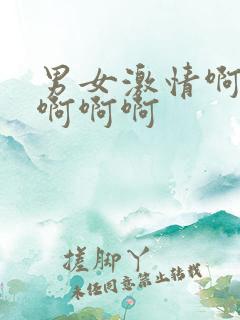 男女激情啊
啊啊啊啊
搓脚丫
未经同意禁止转载